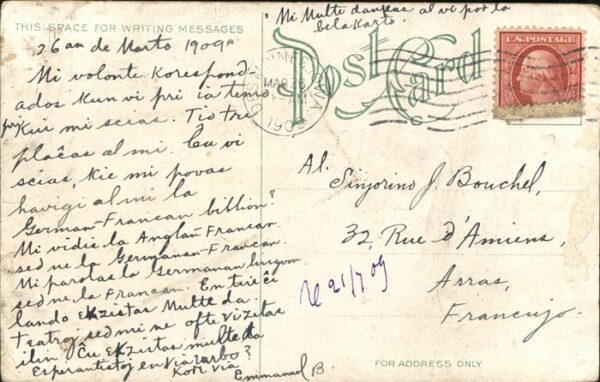 THIS SPACE FOR WRITING MESSAGES
Post Card
Mi Multe dankas al vi por la
bela karto.
U.S. POSTAGE
MAR 26
1909
26an de Marto 1909a
Mi volonte korespond-
ados kun vi pri ia temo
pri kiu mi scias. Tio tre
plaĉas al mi. Ĉu vi
scias, kie mi povas
havigi al mi la
German-Francan
Mi vidis la Anglan-Francan
sed ne la Germanan-Francan.
Mi parolas la Germanan lingvon
sed ne la Francan. En tiu ĉi
lando ekzistas Multe da
teatroj, sed mi ne ofte vizitas
ilin. Ĉu ekzistas multe da
Esperantistoj en via urbo?
Kore via
Emmanuel B.
Al.
Sinjorino J. Bouchel,
32, Rue d'Amiens,
Arras,
Francujo.
Re 21/4 09
FOR ADDRESS ONLY